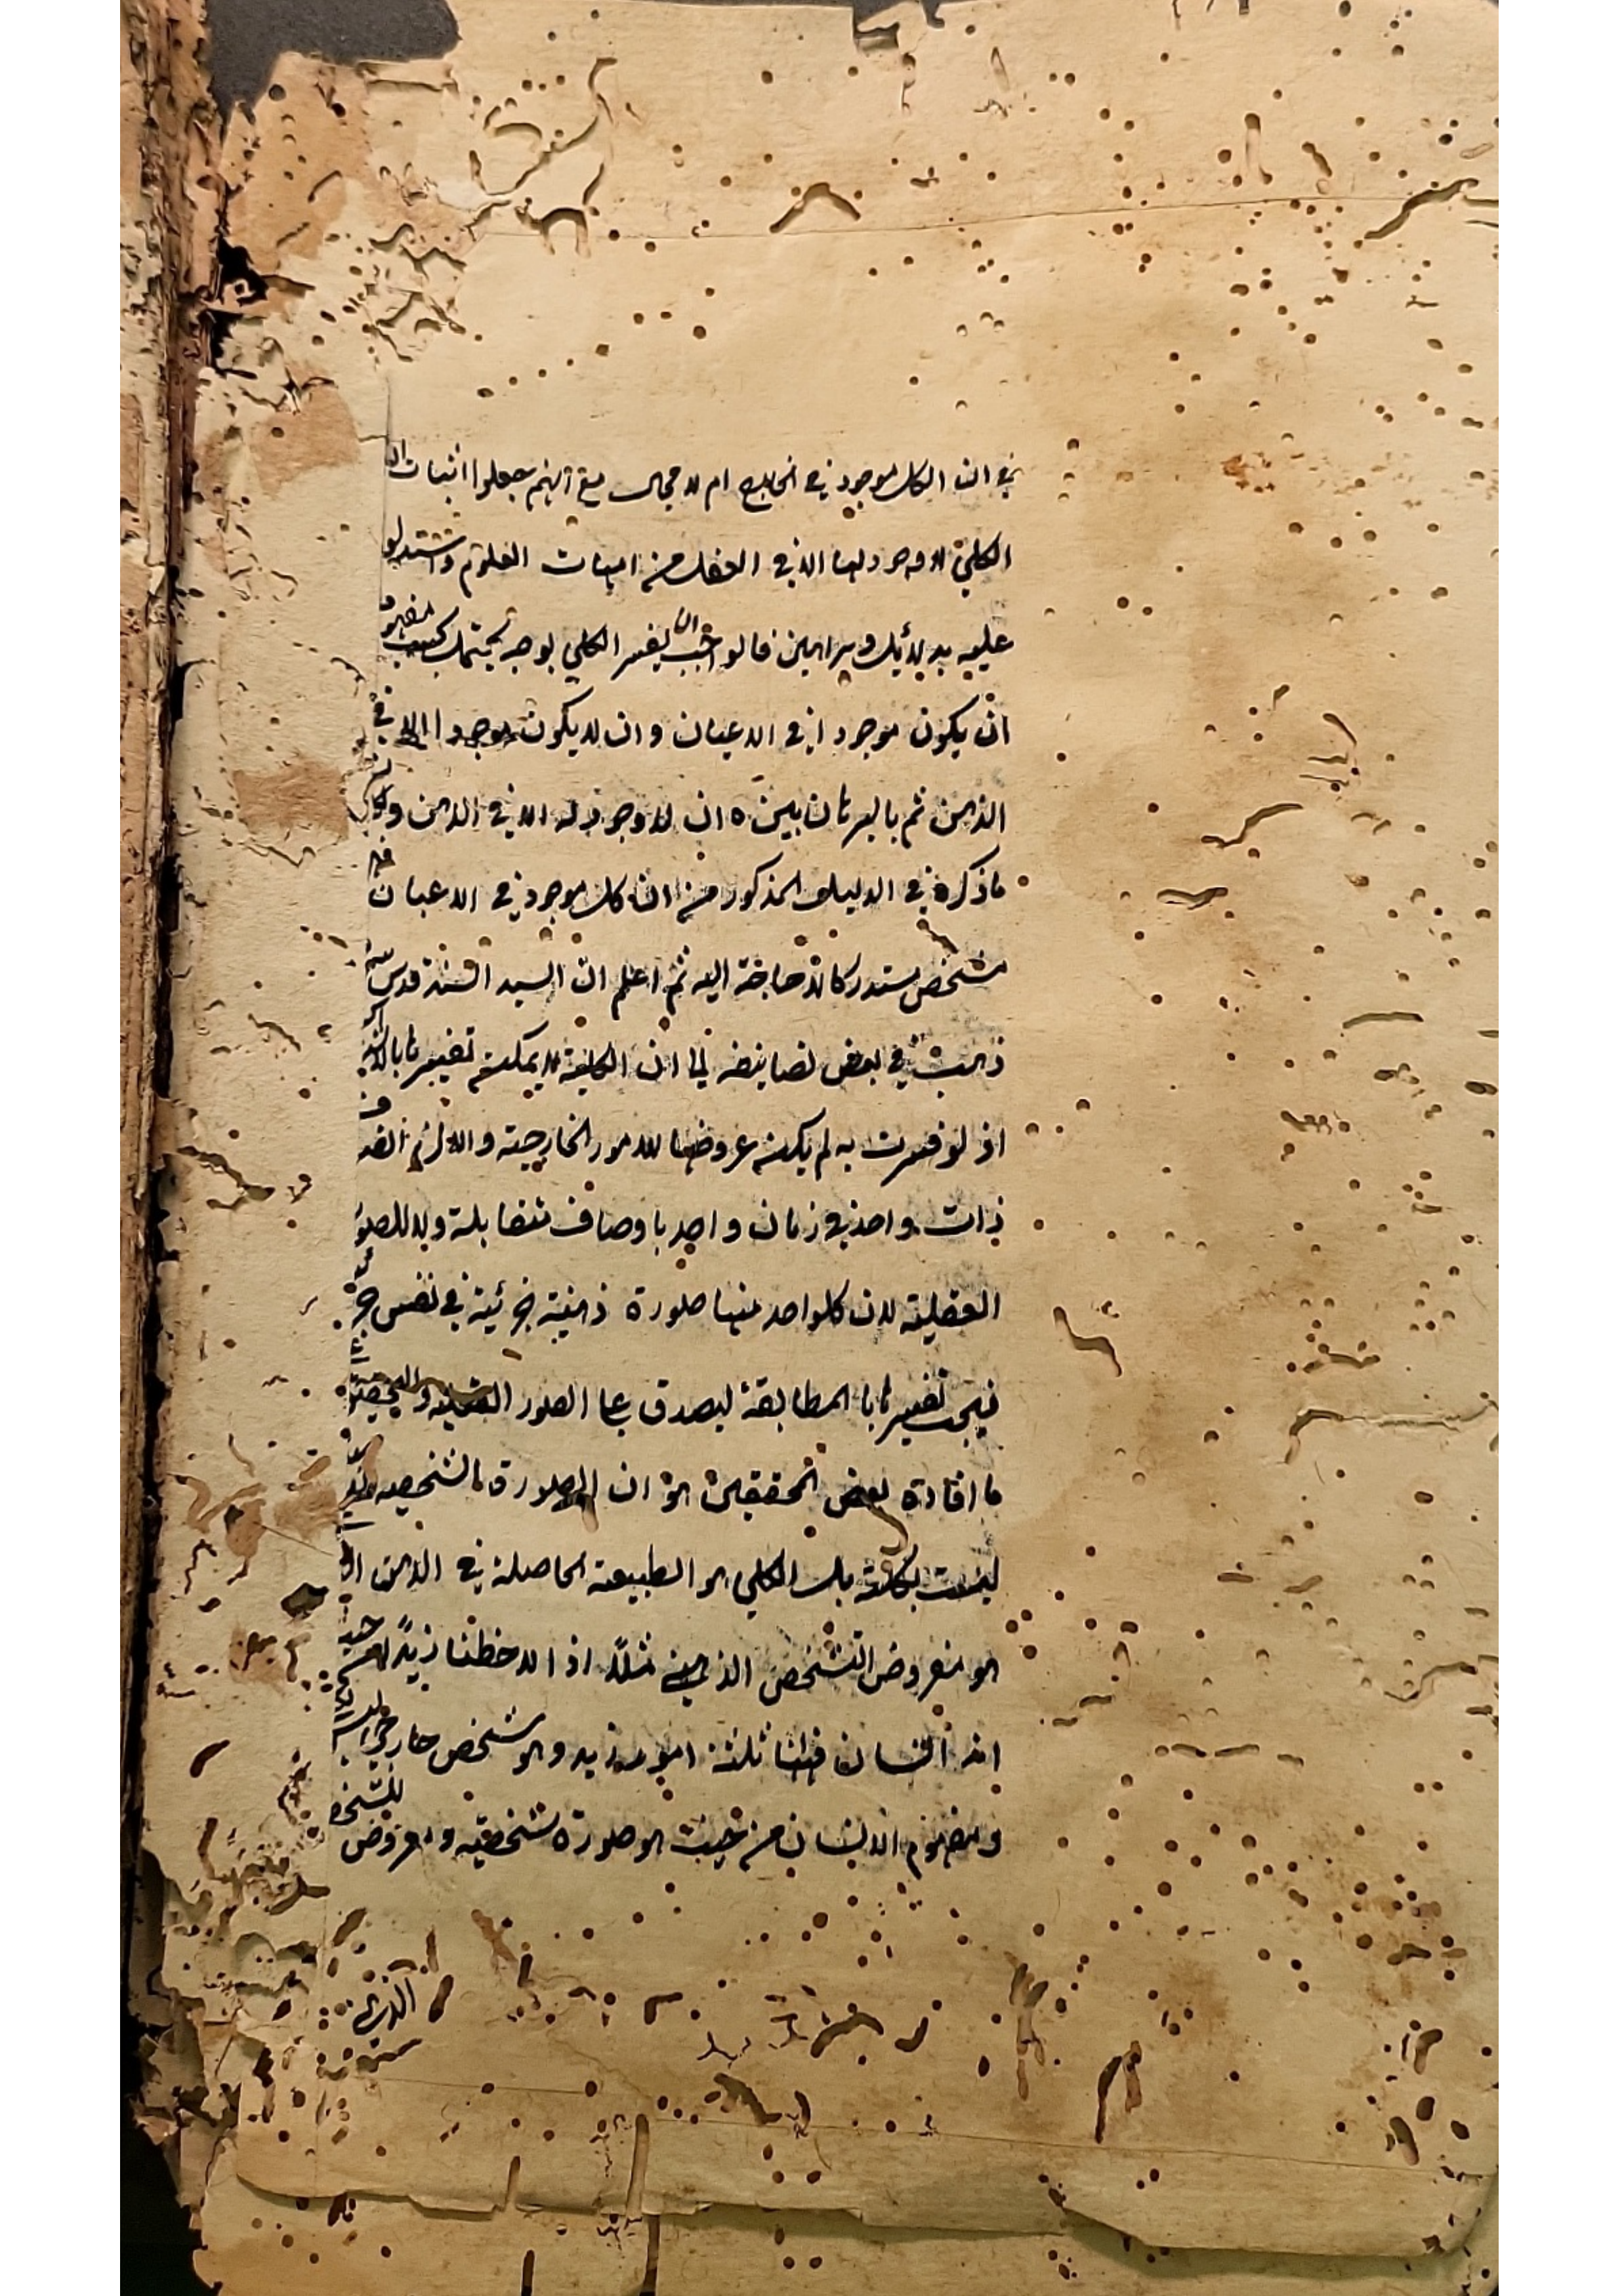 في ان الكلي موجود في الخارج ام لا محال مع انهم جعلوا اثبات ان
الكلي لا وجود لها الا في العقل من امهات العلوم واستدلوا
عليه بدلائل وبراهين فالواجب ان يفسر الكلي بوجه يحتمل بحسب المفهوم
ان يكون موجودا في الاعيان وان لا يكون موجودا الا في
الذهن ثم بالبرهان بين ان لا وجود له الا في الذهن
ما ذكره في الدليل المذكور من ان كل موجود في الاعيان فهو
مشخص مستدرك لا حاجة اليه ثم اعلم ان السيد السند قدس سره
ذهب في بعض تصانيفه الى ان الكلية لا يمكن تفسيرها بالاشتراك
اذ لو فسرت به لم يكن عروضها للامور الخارجية والا لزم
ذات واحد في زمان واحد باوصاف متقابلة ولا للصور
العقلية لان كلواحد منها صورة ذهنية جزئية في نفس
فيجب تفسيرها بالمطابقة ليصدق على الصور العقلية
ما افاده بعض المحققين هو ان الصورة الشخصية
ليست بكلية بل الكلي هو الطبيعة الحاصلة في الذهن
هو معروض التشخص الذهني مثلاً اذا لاحظنا زيدً من حيث
انه انسان فهنا ثلثة امور زيد وهو شخص خارجي
ومفهوم الانسان من حيث هو صورة شخصية ومعروض للتشخص
الذهني